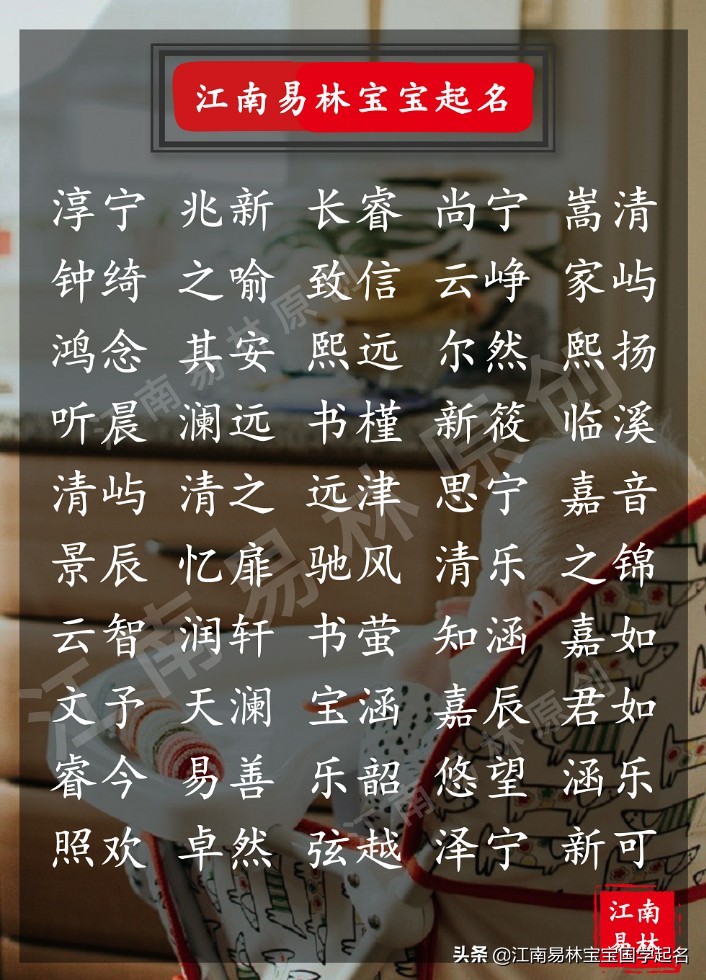 江南易林宝宝起名
淳宁 兆新 长睿 尚宁 嵩清
钟绮 之喻 致信 云峥 家屿
鸿念 其安 熙远 尔然 熙扬
听晨 澜远 书槿 新筱 临溪
清屿 清之 远津 思宁 嘉音
景辰 忆扉 驰风 清乐 之锦
云智 润轩 书萤 知涵 嘉如
文予 天澜 宝涵 嘉辰 君如
睿今 易善 乐韶 悠望 涵乐
照欢 卓然 弦越 泽宁 新可
江南易林原创
江南易林原创
江南易林原创
江南
易林
头条 @江南易林宝宝国学起名